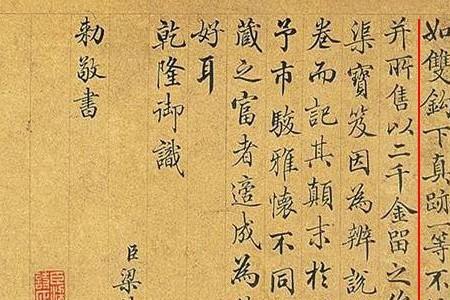 如雙鈎下真跡一等不
并所售以二千金留之
渠寶笈因為辨說
卷而記其顛末於
予市駿雅懷不同
藏之富者適成為
好耳
乾隆御識
臣梁
勅敬書